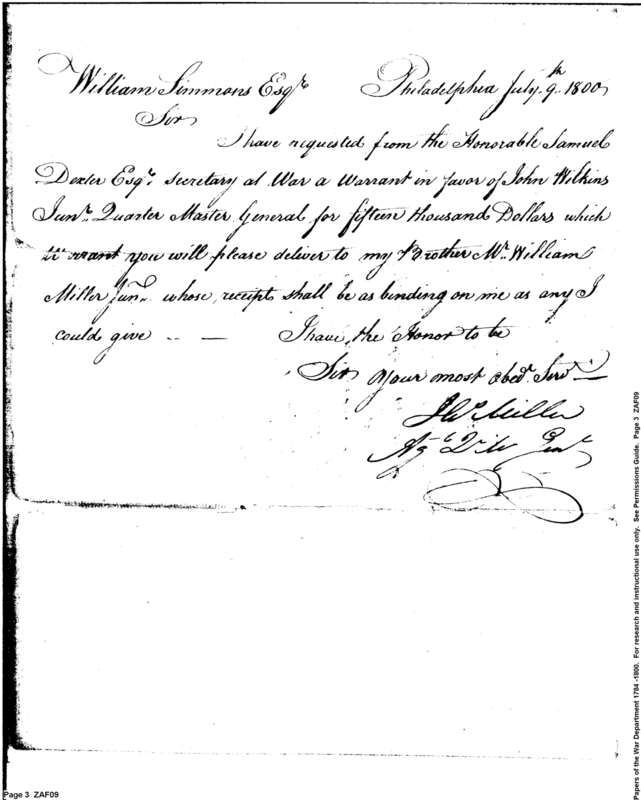 William Simmons Esqr. Philadelphia July 9th 1800
Sir
I have requested from the Honorable Samuel
Dexter Esqr. Secretary at War a Warrant in favor of John Wilkins
Junr. Quarter Master General for fifteen thousand Dollars which
Warrant you will please deliver to my Brother Mr. William
Miller Junr. whose receipt shall be as binding on me as any I
could give — I have the Honor to be
Sir your most obedt. Servt.
Miller
Ag Qr M Genl
Page 3 ZAF09
Papers of the War Department 1784 -1800. For research and instructional use only. See Permissions Guide. Page 3 ZAF09